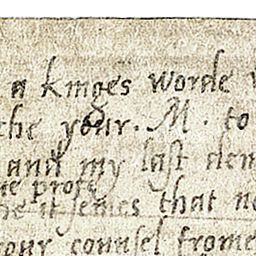 a kinges worde
the your. M. to
and my last
profe
it semes that
your counsel frome